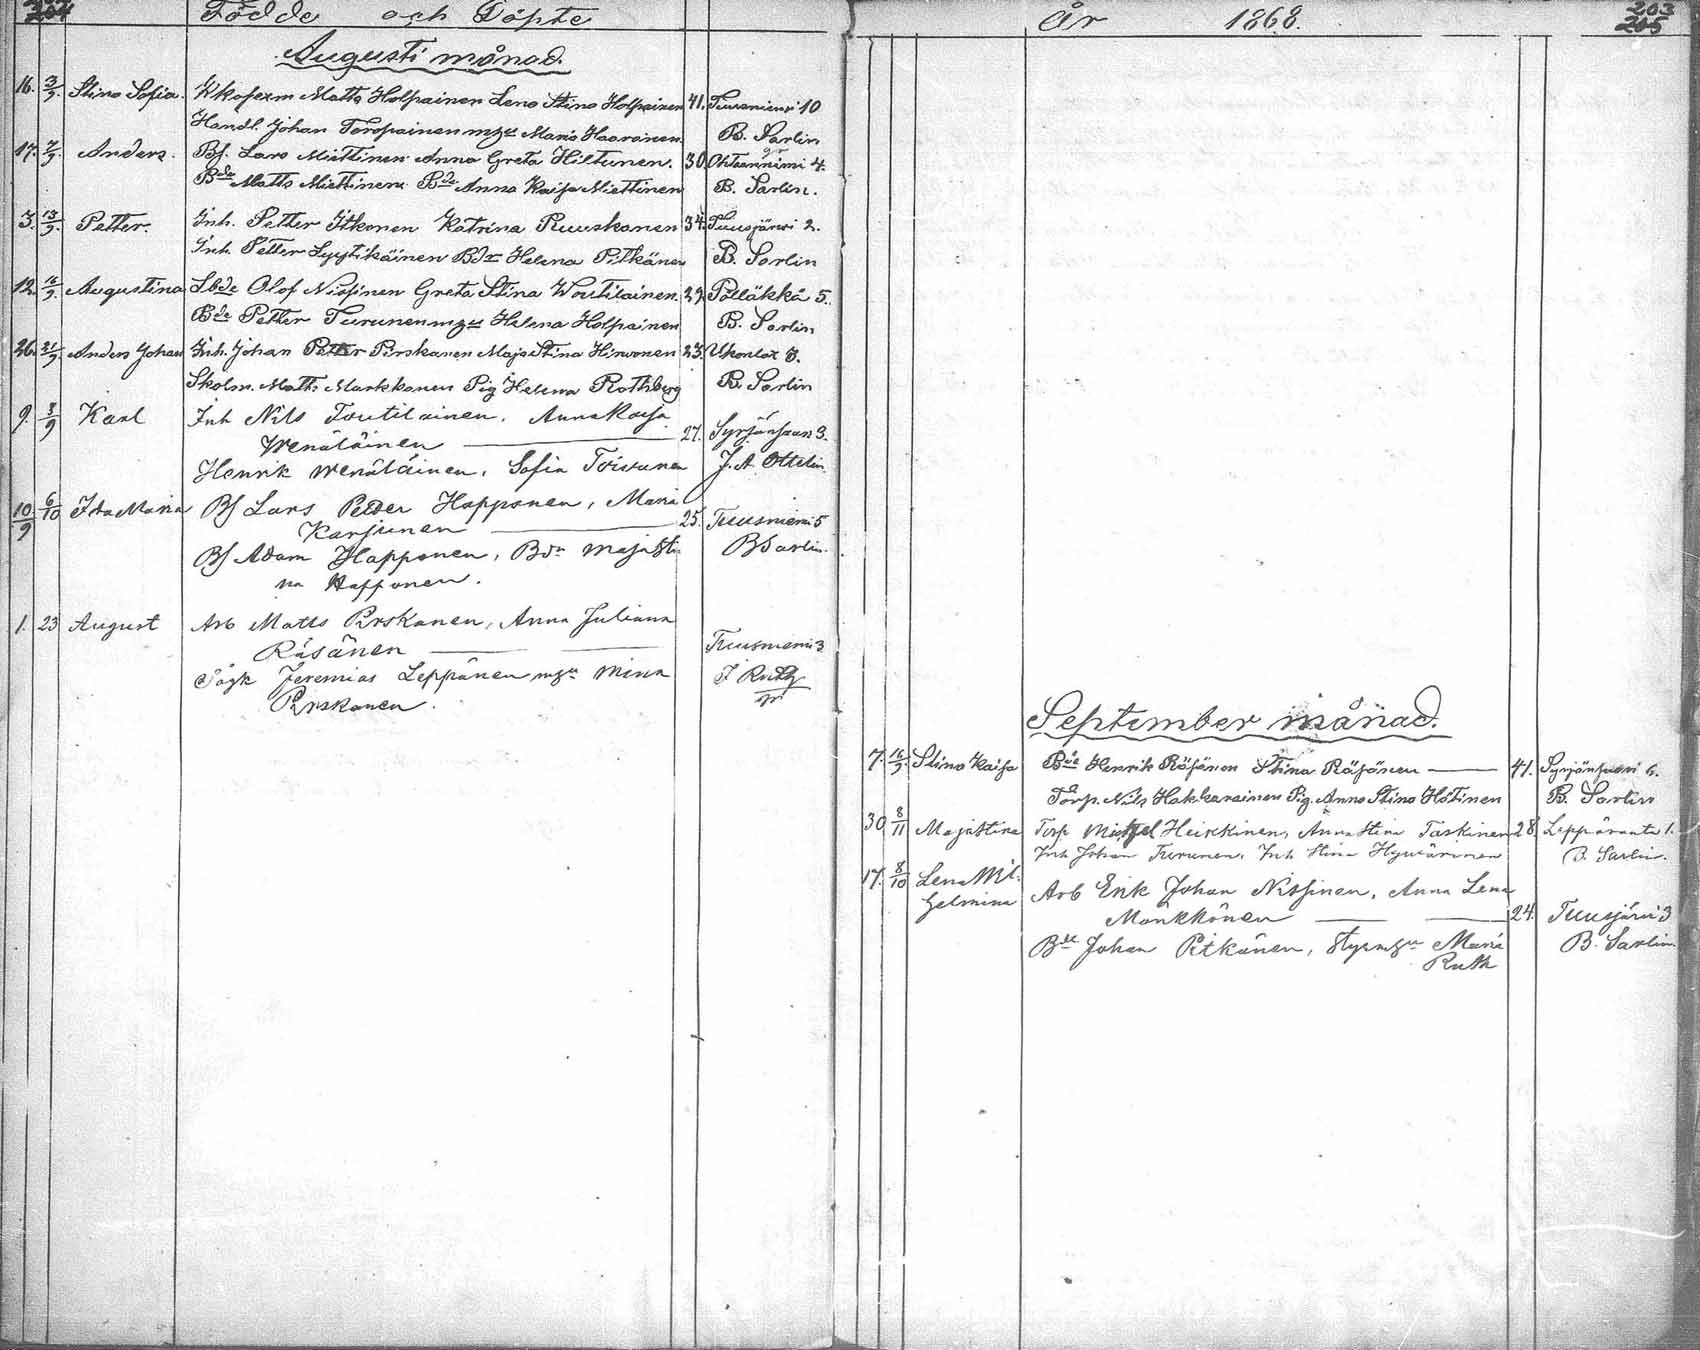 204
Födde och Döpte
Augusti månad.
16. 3/9. Stina Sofia. Matts Holpainen Lena Stina Holpainen 41. Tuusniemi 10
Handl. Johan Toropainen mzu Maria Haaranen. B. Sarlin
17. 7/9. Anders. Bf. Lars Miettinen Anna Greta Hiltunen. 30. Ohtaanniemi 4.
Bde Matts Miettinen Bde Anna Kaisa Miettinen B. Sarlin.
3. 13/9. Petter. Inh. Petter Itkonen Katrina Ruuskanen 34. Tuusjärvi 2.
Inh. Petter Lyytikäinen Bdr Helena Pitkänen B. Sarlin
12. 16/9. Augustina Lbde Olof Nissinen Greta Stina Woutilainen. 29. Pölläkkä 5.
Bde Petter Turunen mzu Helena Holpainen B. Sarlin
26. 21/9. Anders Johan Inh. Johan Petter Pirskanen Maja Stina Hirvonen 23. Ukonlax 3.
Skolm. Matts Markkanen Pig Helena Rothberg B. Sarlin
9. 3/9 Karl Inh Nils Toutilainen, Anna Kaisa
Wenäläinen 27. Syrjänsaari 3.
Henrik Wenäläinen, Sofia Toivanen J. A. Ottelin.
10/9 6/10 Ida Maria Bf Lars Peder Happonen, Maria
Karjunen 25. Tuusniemi 5
Bf Adam Happonen, Bdr Maja Sti-
na Happonen. B Sarlin.
1. 23 August Arb Matts Pirskanen, Anna Juliana
Räsänen Tuusniemi 3
Jeremias Leppänen mzu Mina
Pirskanen.
År 1868.
203
205
September månad.
7. 16/9. Stina Kaisa Bde Henrik Räsänen Stina Räsänen 41. Syrjänsaari 6.
Torp. Nils Hakkarainen Pig. Anna Stina Hötinen B. Sarlin
30 8/11 Maja Stina Torp Mickel Heikkinen, Anna Stina Taskinen 28. Leppäranta 1.
Inh Johan Turunen, Inh Stina Hyvärinen B. Sarlin.
17. 8/10 Lena Wil-
helmina Arb Erik Johan Nissinen, Anna Lena
Mönkkönen 24. Tuusjärvi 3
Bde Johan Pitkänen, Styrmzu Maria
Ruth B. Sarlin.